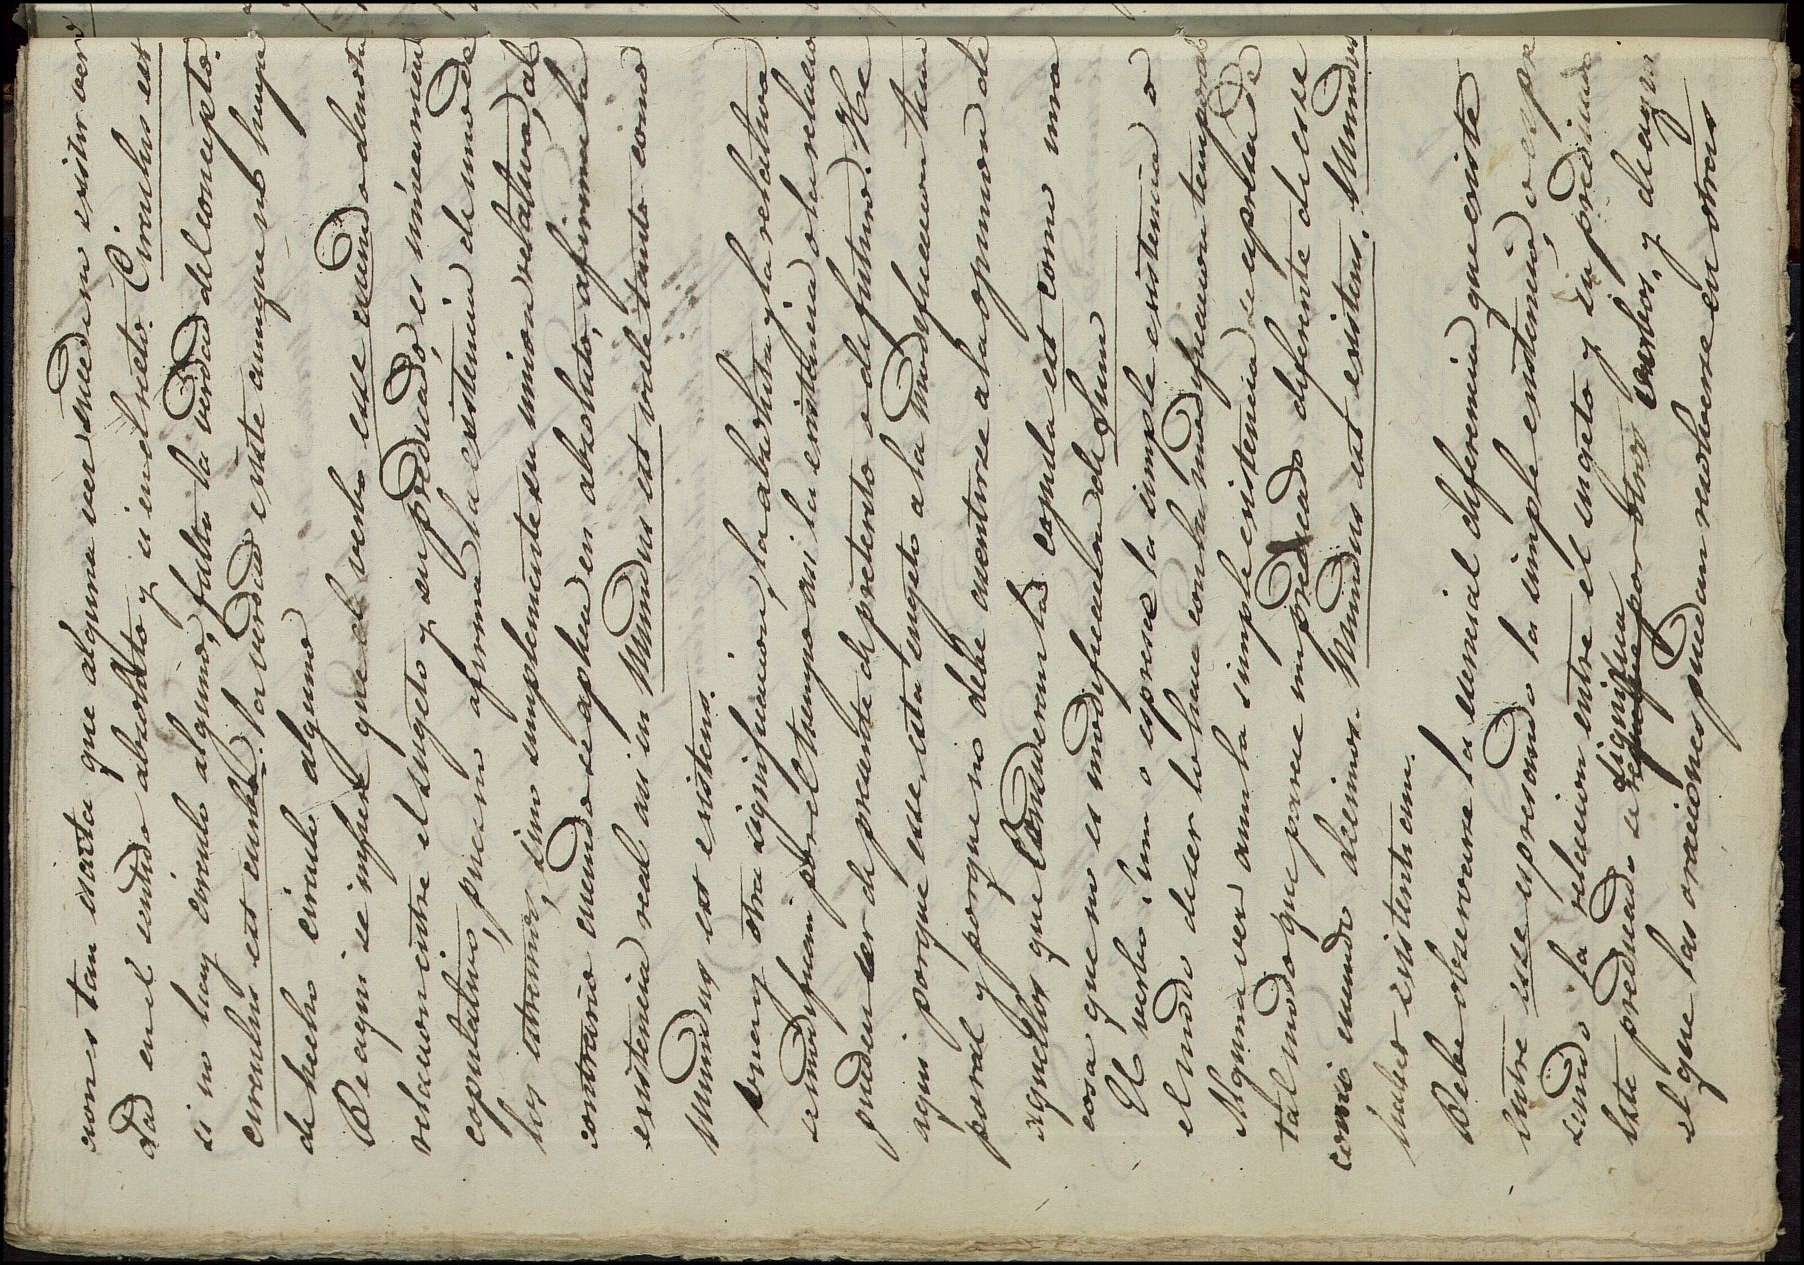 ciones tan exacta que alguna ver pueden existir ver
dad en el sentido absoluto y si en el neto. Circulus est
si no hay circulo alguno, falta la verdad del concepto.
circulus est curbus. La verdad existe aunque no haya
de hecho circulo alguno
De aqui se infiere que el verbo esse cuando denota
relacion entre el sugeto y su predicado, es unicamente
copulativo, pues no afirma la existencia de uno de
los estremos, sino simplemente su union relativa, al
contrario cuando se aplica en absoluto, afirma la
existencia real asi es Mundus est vale tanto como
Mundus est existens.
Hay otra significacion, la absoluta y la relativa
se modifican por el tiempo asi la existencia o la relacion
pueden ser de presente de preterito o de futuro. He
aqui porque esse esta sugeto a la modificacion tem
poral y porque no debe asentirse a la opinion de
aquellos que consideran la copula est como una
cosa que no es modificacion de Sum
El verbo Sum o espresa la simple existencia o
el modo de ser lo hace con la modificacion temporal
Alguna ver aun la simple existencia se esplica de
tal modo que parece un predicado diferente de esse
como cuando decimos. Mundus est existens. Mundus
habet existentiam.
Debe observarse la esencial diferencia que existe
entre esse espresando la simple existencia, o espre
sando la relacion entre el sugeto y su predicado
Este predicado se significa por otros verbos, y de aqui
el que las oraciones puedan resolverse en otras